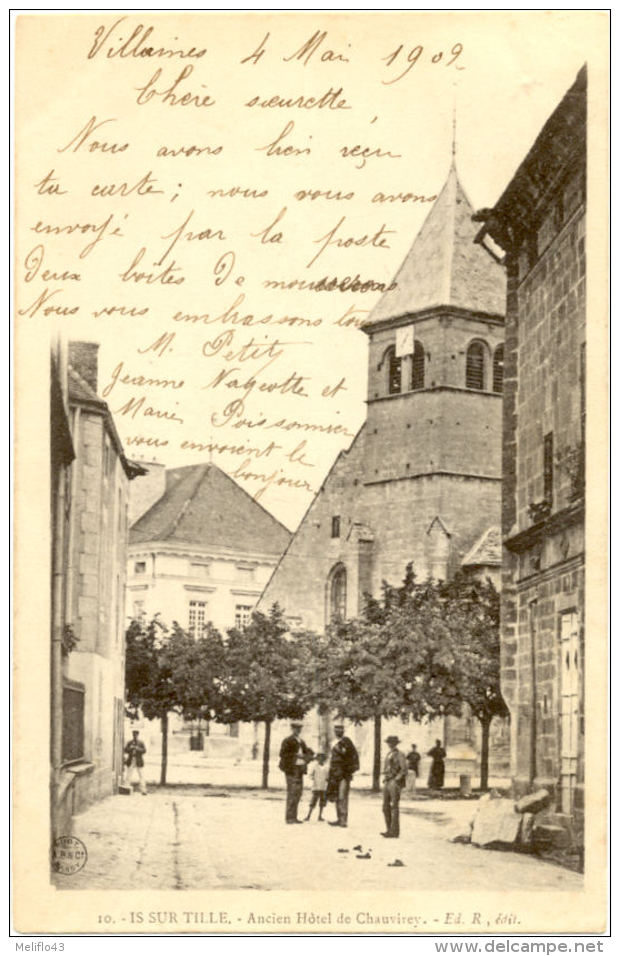 Villaines 4 Mai 1902
Chère sœurette
Nous avons bien reçu
ta carte; nous vous avons
envoyé par la poste
Deux boites De
Nous vous embrassons tous
M. Petit
Jeanne Nageotte et
Marie Poissonnier
vous envoient le
bonjour
10. - IS SUR TILLE. - Ancien Hôtel de Chauvirey. - Ed. R, édit.
Meliflo43
www.delcampe.net